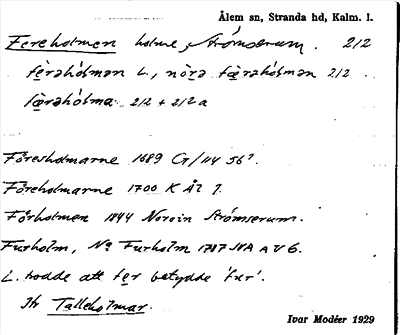 Ålem sn, Stranda hd, Kalm. l.
Fereholmen holme, Strömserum. 212
fè̱rəhólmən L., nö̀rə fæ̱rəhólmən 212
fæ̱rəhólma 212 + 212 a
Föresholmarne 1689 G/114 56².
Föreholmarne 1700 K Äl 7.
Förholmen 1844 Norvin Strömserum.
Furholm, No Furholm 1787 JVA A V 6.
L. trodde att fer betydde 'fur'.
Jfr Talleholmar.
Ivar Modéer 1929